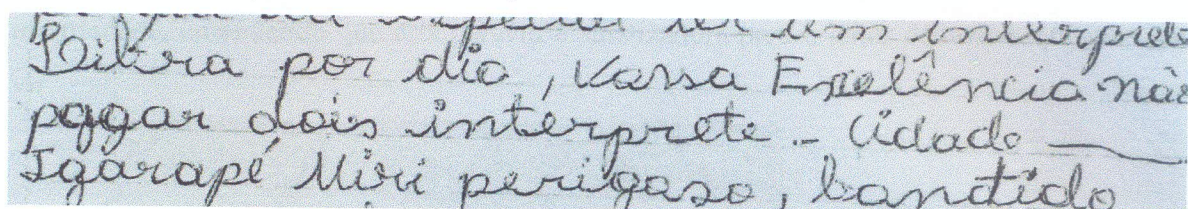 ter um interprete
Libra por dia, Vossa Exelência não
pagar dois interprete - Cidade
Igarapé Miri perigoso, bandido